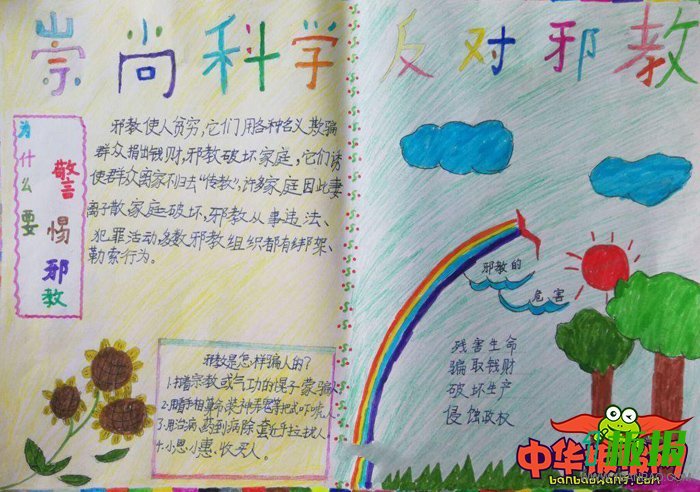 崇尚科学 反对邪教
为什么要
警惕邪教
邪教使人贫穷,它们用各种名义欺骗
群众捐出钱财,邪教破坏家庭,它们诱
使群众离家不归去“传教”,许多家庭因此妻
离子散家庭破坏,邪教从事违法、
犯罪活动,多数邪教组织都有绑架、
勒索行为。
邪教是怎样骗人的?
1.打着宗教或气功的幌子蒙骗人
2.用看手相算命、装神弄鬼等把式吓唬人
3.用治病、药到病除套近乎拉拢人。
4.小恩小惠收买人。
邪教的
危害
残害生命
骗取钱财
破坏生产
侵蚀政权
中华 报
banbaowang.com